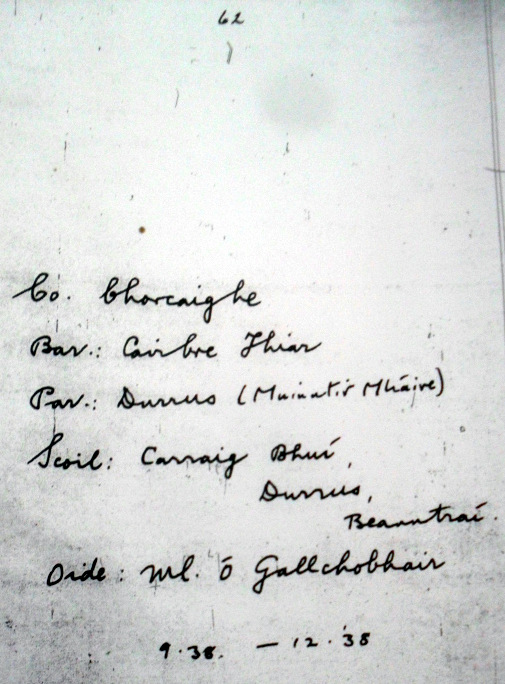 62
Co. Chorcaighe
Bar.: Cairbre Thiar
Par.: Durrus (Muinntir Mháire)
Scoil: Carraig Bhuí,
Durrus,
Beanntraí.
Oide: Ml. Ó Gallchobhair
9.38. — 12.38